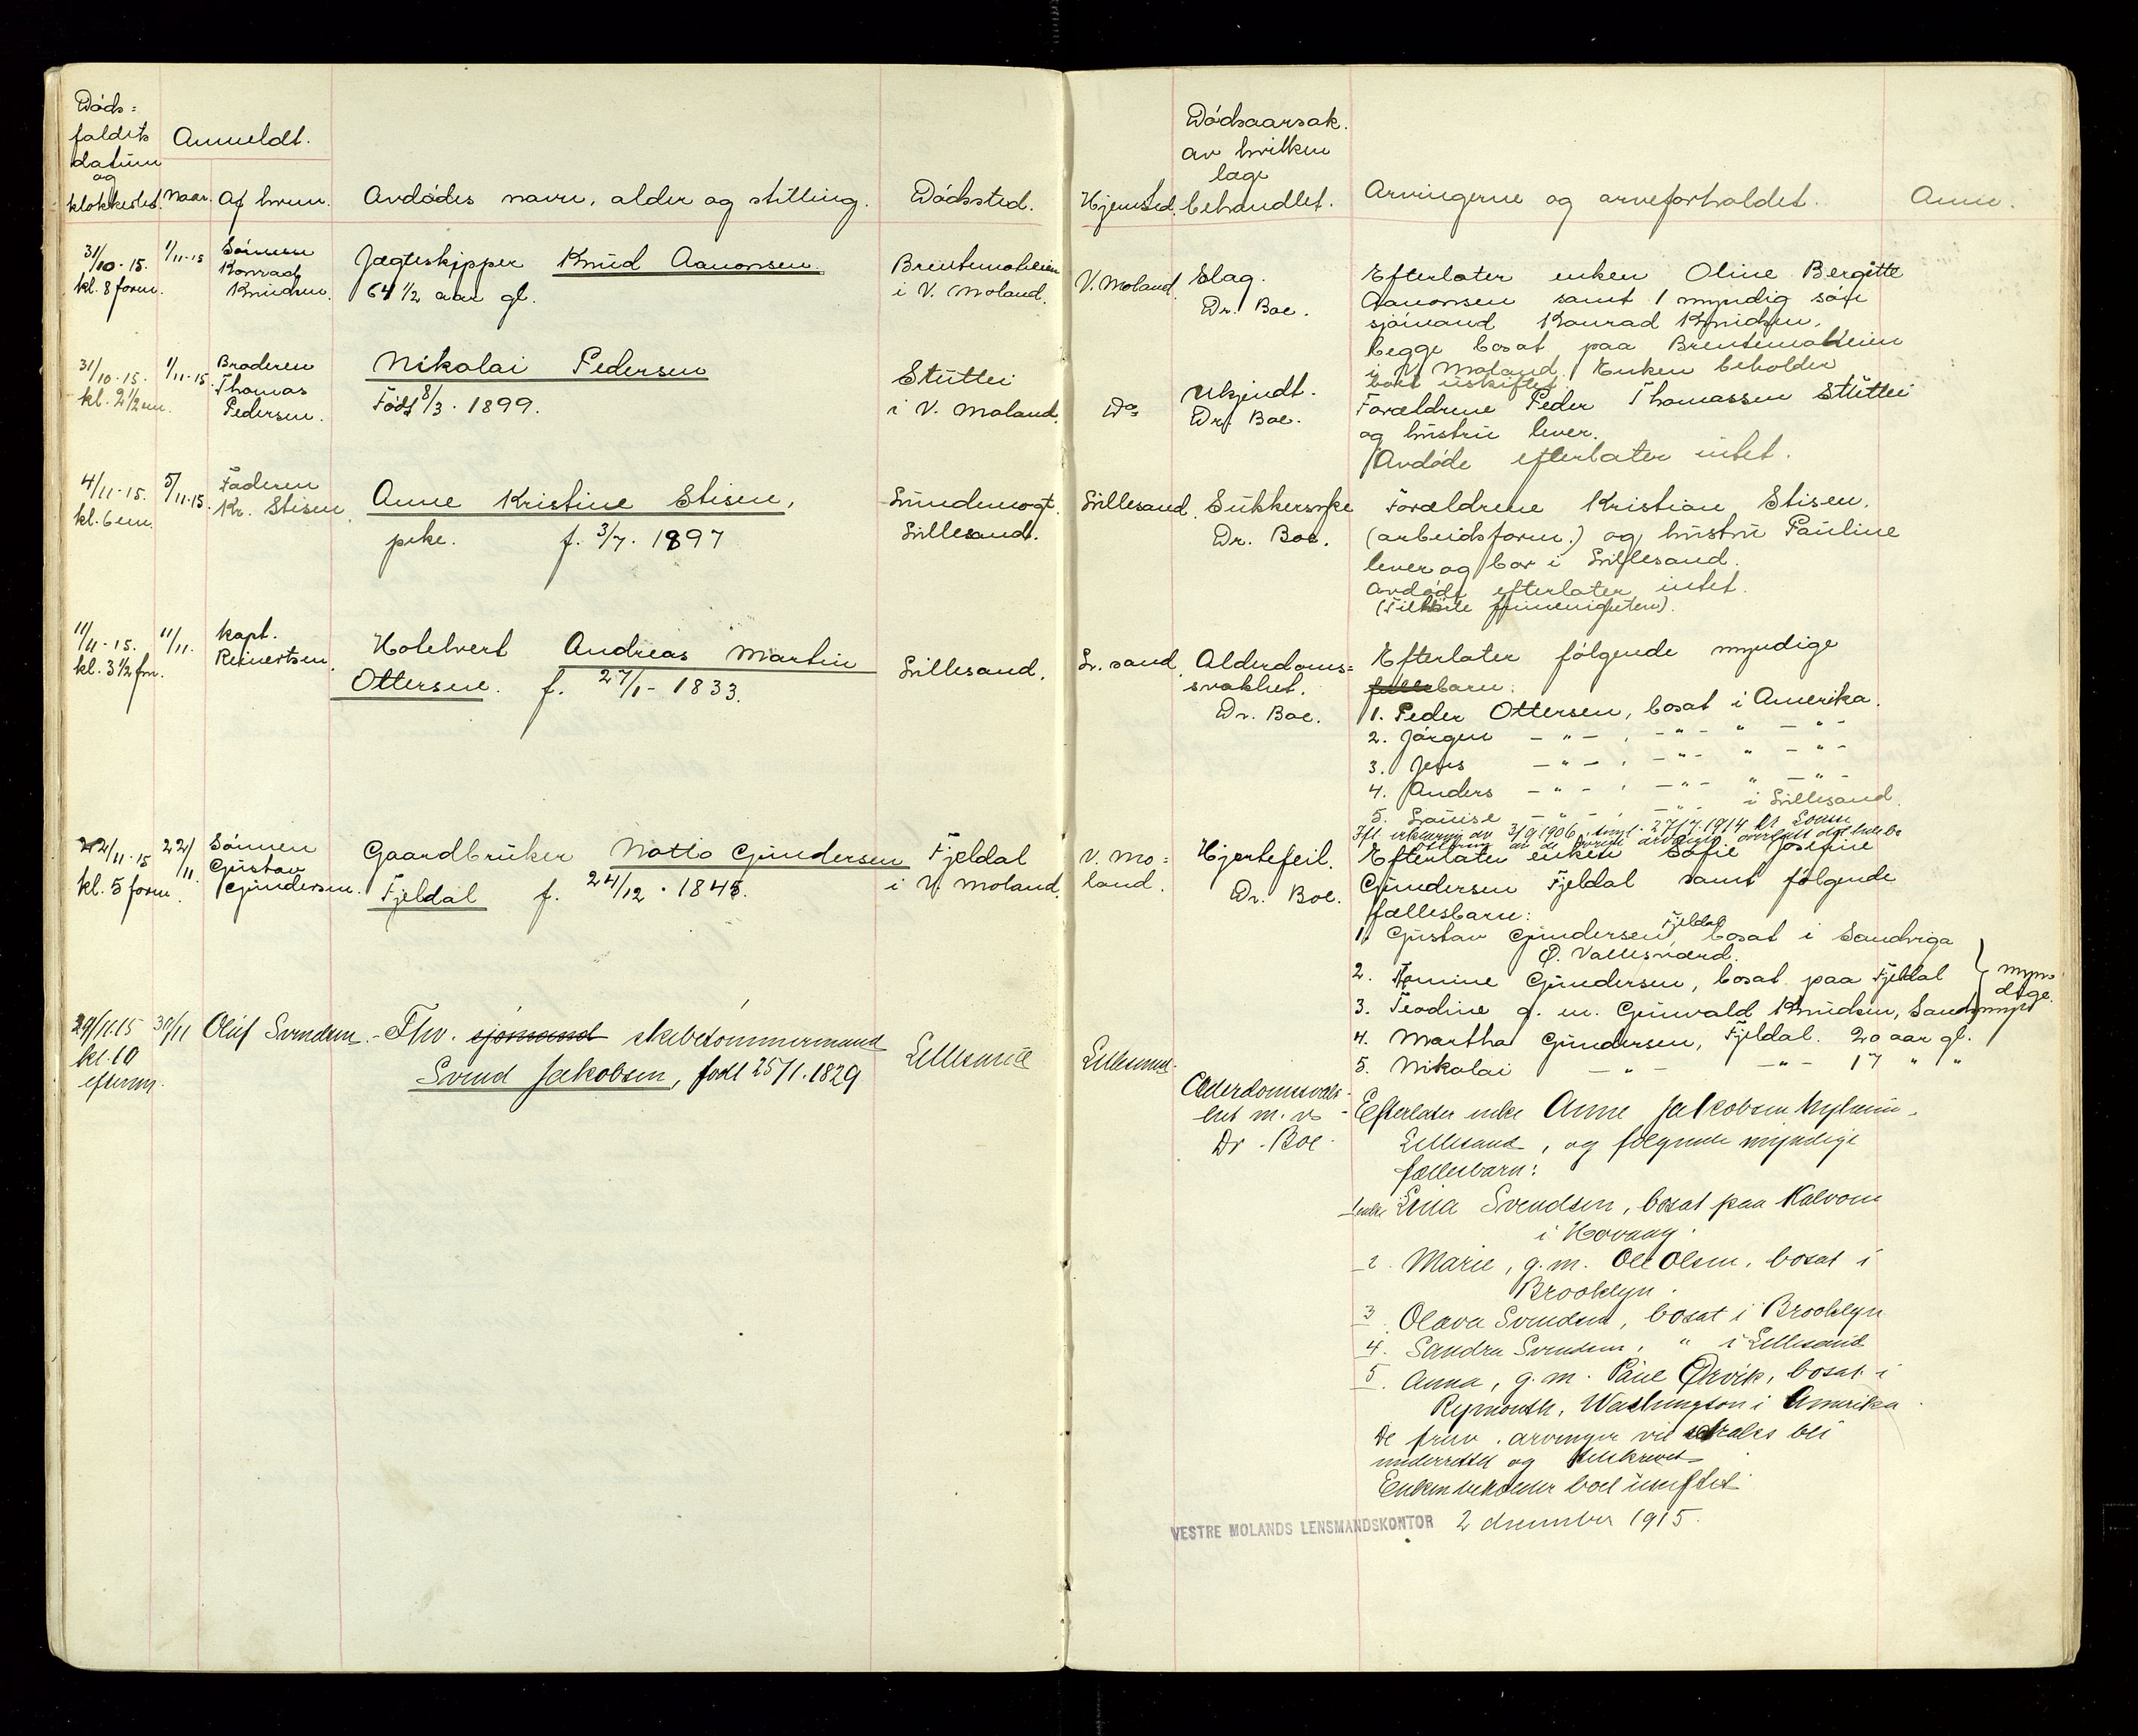 Döds=
faldets
datum
og
klokkeslet.
Anmeldt.
Naar.
Af hvem.
Avdödes navn, alder og stilling.
Dödssted.
Hjemsted.
Dödsaarsak.
av hvilken
læge
behandlet.
Arvingerne og arveforholdet.
Anm.
31/10-15.
kl. 8 form.
1/11-15
Sönnen
Konrad
Knudsen.
Jægteskipper Knud Aanonsen
64 1/2 aar gl.
Brentemoheien
i V. Moland.
V. Moland.
Slag.
Dr. Boe.
Efterlater enken Oline Bergitte
Aanonsen samt 1 myndig sön
sjömand Konrad Knudsen,
begge bosat paa Brentemoheien
i V. Moland. Enken beholder
boet uskiftet.
31/10-15.
kl. 2 1/2 em.
1/11-15.
Broderen
Thomas
Pedersen.
Nikolai Pedersen
Född 8/3. 1899.
Stutlei
i V. Moland.
Do
Ukjendt.
Dr. Boe.
Forældrene Peder Thomassen Stutlei
og hustru lever.
Avdöde efterlater intet.
4/11-15.
kl. 6 em.
5/11-15.
Faderen
Kr. Stisen.
Anne Kristine Stisen,
pike. f. 3/7. 1897
Lillesand.
Lillesand.
Sukkersyke
Dr. Boe.
Forældrene Kristian Stisen.
(arbeidsform.) og hustru Pauline
lever og bor i Lillesand.
Avdöde efterlater intet.
11/11-15.
kl. 3 1/2 fm.
11/11.
kapt.
Reinertsen.
Hotelvert Andreas Martin
Ottersen. f. 27/1-1833.
Lillesand.
L.sand.
Alderdoms=
svakhet.
Dr. Boe.
Efterlater følgende myndige
fællesbarn:
1. Peder Ottersen, bosat i Amerika.
2. Jörgen - " - , - " - " - " -
3. Jens - " - , - " - " - " -
4. Anders - " - , - " - " - " -
5. Louise - " - , - " - i Lillesand.
22/11-15
kl. 5 form.
22/11.
Sönnen
Gustav
Gundersen.
Gaardbruker Notto Gundersen
Fjeldal f. 24/12. 1845.
Fjeldal
i V. Moland.
V. Mo=
land.
Hjertefeil.
Dr. Boe.
Efterlater enken Sofie Josefine
Gundersen Fjeldal samt følgende
fællesbarn:
1. Gustav Gundersen Fjeldal, bosat i Sandviga
Ø. Vallesværd.
2. Tomine Gundersen, bosat paa Fjeldal
myn-
dige.
3. Teodine g. m. Gunvald Knudsen,
4. Martha Gundersen, Fjeldal. 20 aar gl.
5. Nikolai - " - - " - 17 " "
29/11.15
kl. 10
efterm.
30/11
Oluf Svendsen.
Fhv. sjömand skibstömmermand
Svend Jakobsen, född 25/1. 1829
Lillesand
Lillesand.
Alderdomssvak-
het m.v.
Dr. Boe.
Efterlater enke Anne Jakobsen
Lillesand, og følgende myndige
fællesbarn:
1 enke Lina Svendsen, bosat paa Kalvøen
i Høvaag.
2. Marie, g.m. Ole Olsen, bosat i
Brooklyn.
3. Olava Svendsen, bosat i Brooklyn
4. Sandra Svendsen, " i Lillesand
5. Anna, g.m. Paul Ørvik, bosat i
Reymonth, Washington i Amerika.
De frav. arvinger vil straks bli
underrettet og tilskrevet
Enken beholder boet uskiftet
VESTRE MOLANDS LENSMANDSKONTOR 2 december 1915.